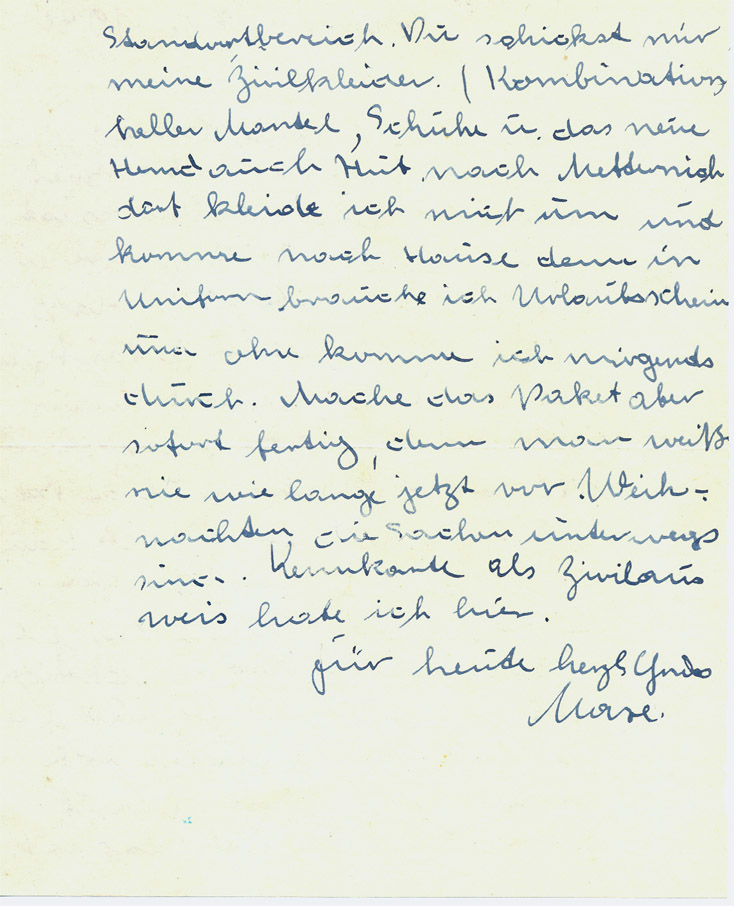 Standortbereich. Du schickst mir
meine Zivilkleider. ( Kombination,
heller Mantel, Schuhe u. das neue
Hemd auch Hut nach Metternich
dort kleide ich mich um und
komme nach Hause denn in
Uniform brauche ich Urlaubsschein
und ohne komme ich nirgends
durch. Mache das Paket aber
sofort fertig, denn man weiß
nie wie lange jetzt vor Weih-
nachten die Sachen unterwegs
sind. Kennkarte als Zivilaus
weis habe ich hier.
Für heute herzl